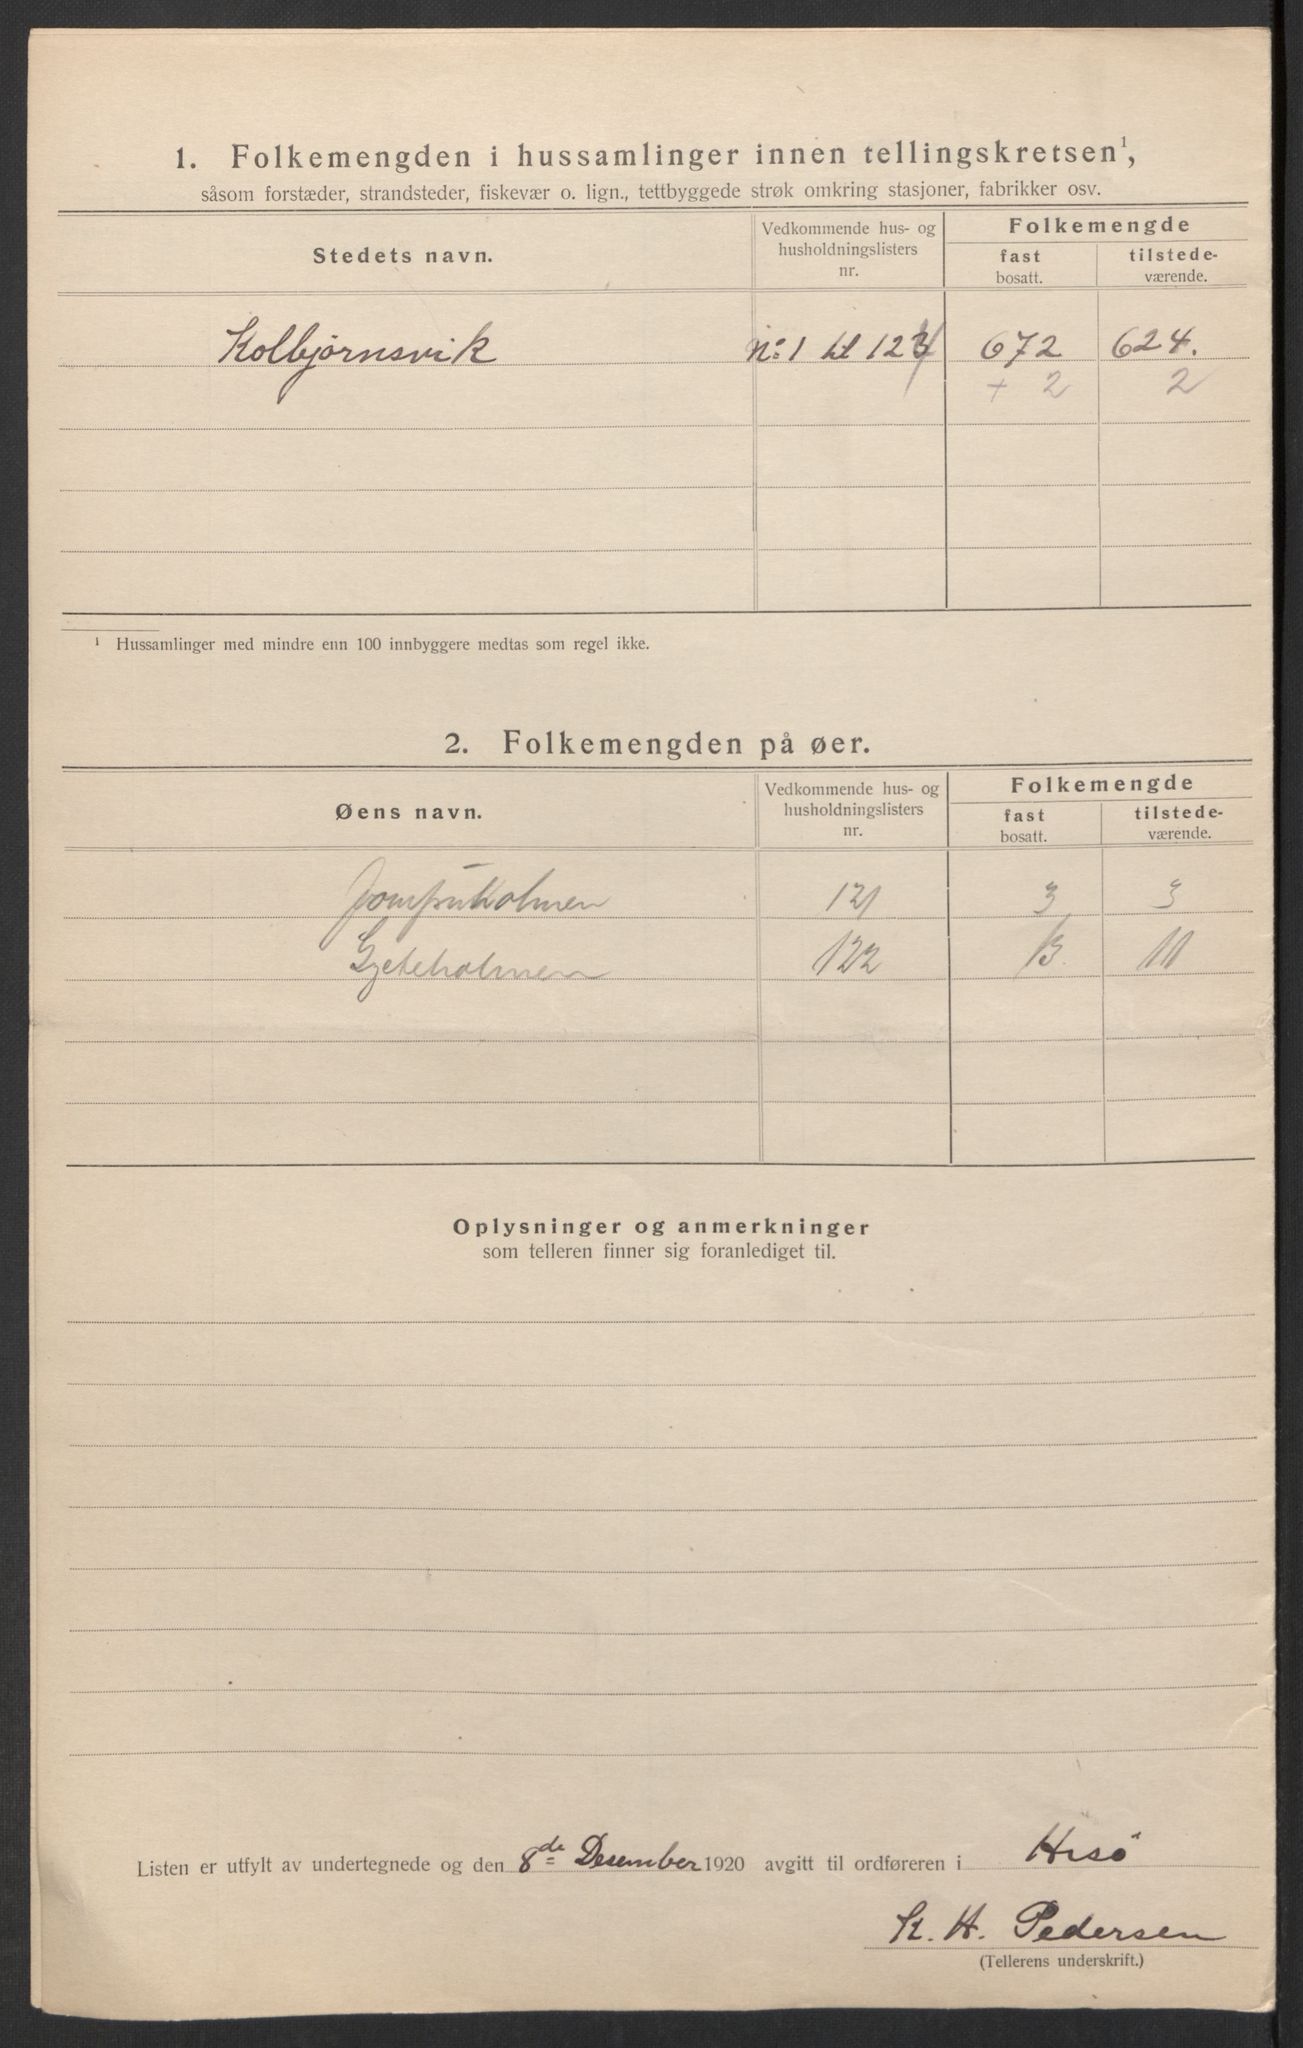 1. Folkemengden i hussamlinger innen tellingskretsen¹,
såsom forstæder, strandsteder, fiskevær o. lign., tettbyggede strøk omkring stasjoner, fabrikker osv.
Stedets navn.
Vedkommende hus- og husholdningslisters nr.
Folkemengde
fast bosatt.
tilstede-værende.
Kolbjørnsvik No 1 til 123 672 624.
+ 2 2
¹ Hussamlinger med mindre enn 100 innbyggere medtas som regel ikke.
2. Folkemengden på øer.
Øens navn.
Vedkommende hus- og husholdningslisters nr.
Folkemengde
fast bosatt.
tilstede-værende.
Jomfruholmen 121 3 3
Gjeteholmen 122 13. 11
Oplysninger og anmerkninger
som telleren finner sig foranlediget til.
Listen er utfylt av undertegnede og den 8de Desember 1920 avgitt til ordføreren i Hisö
K. H. Pedersen
(Tellerens underskrift.)